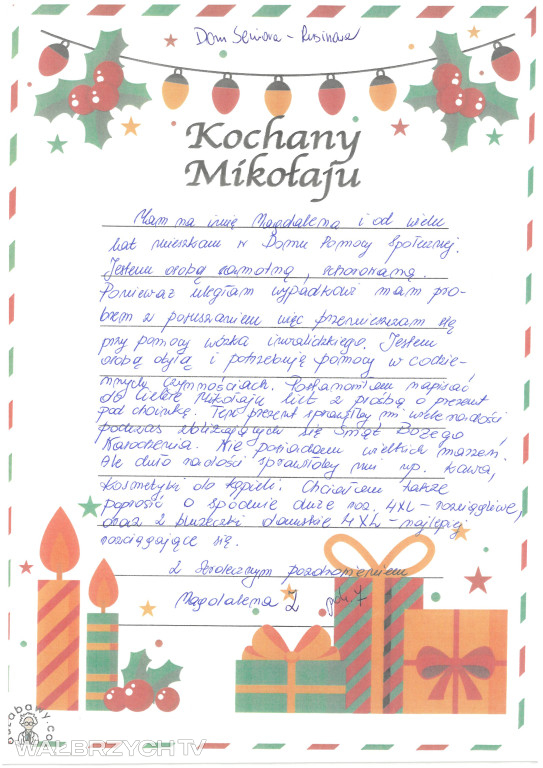 Dom Seniora - Rusinowa
Kochany
Mikołaju
Mam na imię Magdalena i od wielu
lat mieszkam w Domu Pomocy Społecznej.
Jestem osobą samotną, schorowaną.
Ponieważ uległam wypadkowi mam pro-
blem z poruszaniem więc przemieszczam się
przy pomocy wózka inwalidzkiego. Jestem
osobą otyłą i potrzebuję pomocy w codzie-
nnych czynnościach. Postanowiłam napisać
do Ciebie Mikołaju list z prośbą o prezent
pod choinkę. Ten prezent sprawiłby mi wiele radości
podczas zbliżających się Świąt Bożego
Narodzenia. Nie posiadam wielkich marzeń,
Ale dużo radości sprawiłaby mi np. kawa,
kosmetyki do kąpieli. Chciałam także
poprosić o spodnie duże roz. 4XL - rozciągliwe,
oraz 2 bluzeczki damskie 4XL - najlepiej
rozciągające się.
Z serdecznym pozdrowieniem
Magdalena Z
autobawy.co
WAŁBRZYCH TV